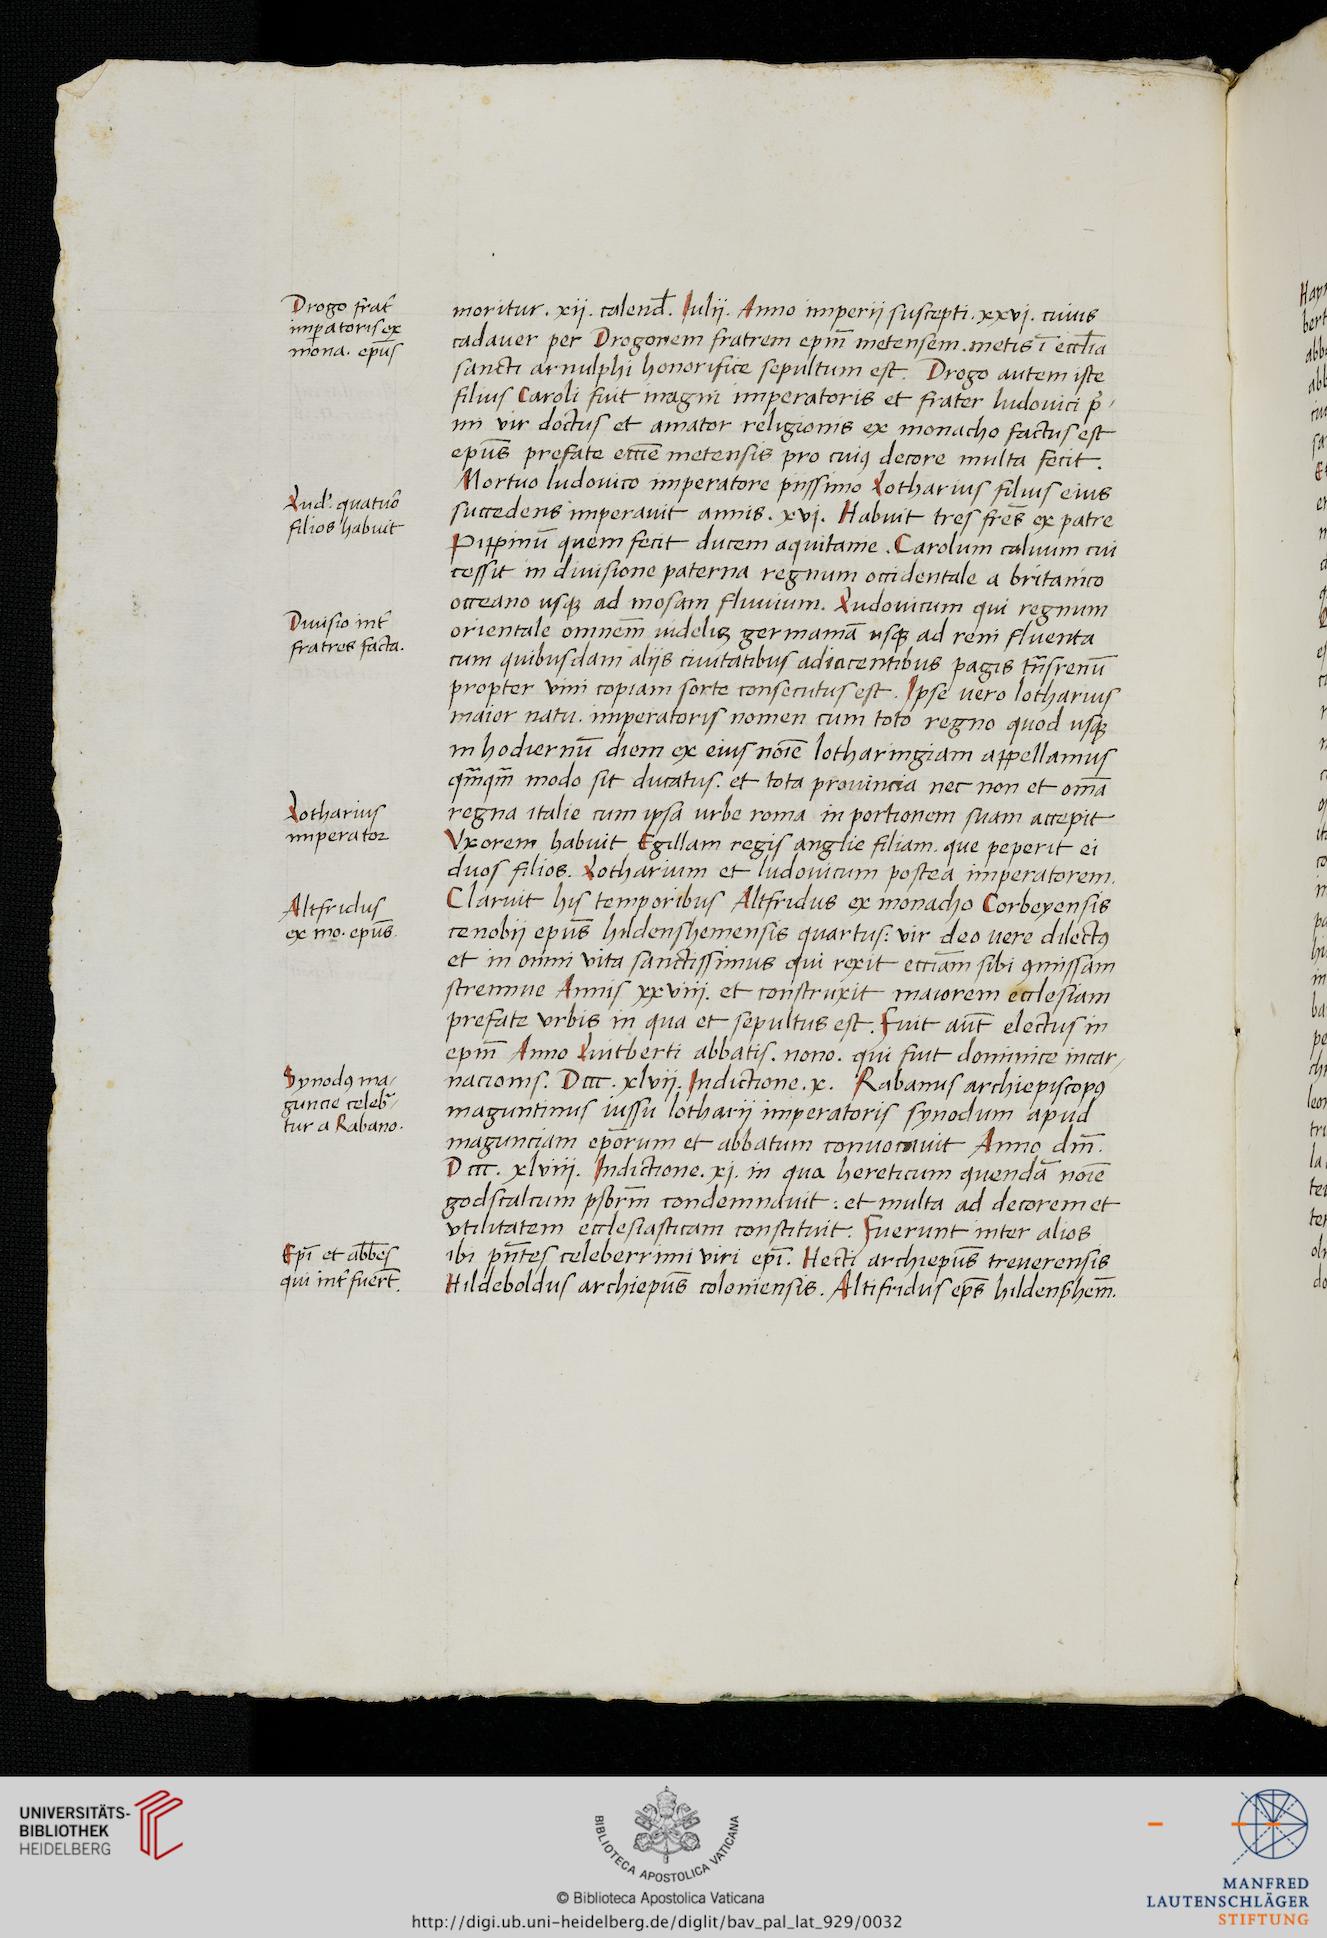 Drogo frat᷑
imp̱atoris ex
mona. ep̄us
moritur. xij. calend̄. Iulij. Anno imperij suscepti. xxvj. cuius
cadauer per Drogonem fratrem ep̄m metensem. metis ī eccl̄ia
sancti arnulphi honorifice sepultum est. Drogo autem iste
filius Caroli fuit magni imperatoris et frater ludouici p̄ /
mi vir doctus et amator religionis ex monacho factus est
ep̄us prefate ecc̄e metensis pro cuiꝯ decore multa fecit.
Lud᷑. quatuō
filios habuit
Mortuo ludouico imperatore pijssimo Lotharius filius eius
succedens imperauit annis. xvj. Habuit tres fr̄es ex patre
Pippinū quem fecit ducem aquitanie. Carolum caluum cui
cessit in diuisione paterna regnum occidentale a britanico
occeano usqꝫ ad mosam fluuium. Ludouicum qui regnum
Diuisio int᷑
fratres facta.
orientale omnem̄ uideliꝫ germaniā usqꝫ ad reni fluenta
cum quibusdam alijs ciuitatibus adiacentibus pagis trn̄srenū
propter vini copiam sorte consecutus est. Ipse uero lotharius
maior natu. imperatoris nomen cum toto regno quod usqꝫ
in hodiernū diem ex eius nōie lotharingiam appellamus
qm̄qm̄ modo sit ducatus. et tota prouincia nec non et om̄a
Lotharius
imperator
regna italie cum ipsa urbe roma in portionem suam accepit
Vxorem habuit Egillam regis anglie filiam. que peperit ei
duos filios. Lotharium et ludouicum postea imperatorem.
Altfridus
ex mo. ep̄us.
Claruit his temporibus Altfridus ex monacho Corbeyensis
cenobij ep̄us hildenshemensis quartus: vir deo uere dilectꝯ
et in omni vita sanctissimus qui rexit ecc̄iam sibi ꝯmissam
strennue Annis xxviij. et construxit maiorem ecclesiam
prefate vrbis in qua et sepultus est. Fuit aūt electus in
ep̄m Anno Luitberti abbatis. nono. qui fuit dominice incar/
Synodꝯ ma/
guncie celeb᷑/
tur a Rabano.
nacionis. Dccc. xlvij. Indictione. x. Rabanus archiepiscopꝯ
maguntinus iussu lotharij imperatoris synodum apud
magunciam ep̄orum et abbatum conuocauit Anno dm̄.
Dccc. xlviij. Indictione. xj. in qua hereticum quendā nōie
godscalcum psbr̄m condemnauit: et multa ad decorem et
vtilitatem ecclesiasticam constituit. Fuerunt inter alios
Ep̄i et abb̄es
qui int᷑ fuer̄t.
ibi pn̄tes celeberrimi viri ep̄i. Hecti archiep̄us treuerensis
Hildeboldus archiep̄us coloniensis. Altifridus ep̄s hildenshem̄.
UNIVERSITÄTS-
BIBLIOTHEK
HEIDELBERG
BIBLIOTECA APOSTOLICA VATICANA
© Biblioteca Apostolica Vaticana
http://digi.ub.uni-heidelberg.de/diglit/bav_pal_lat_929/0032
MANFRED
LAUTENSCHLÄGER
STIFTUNG